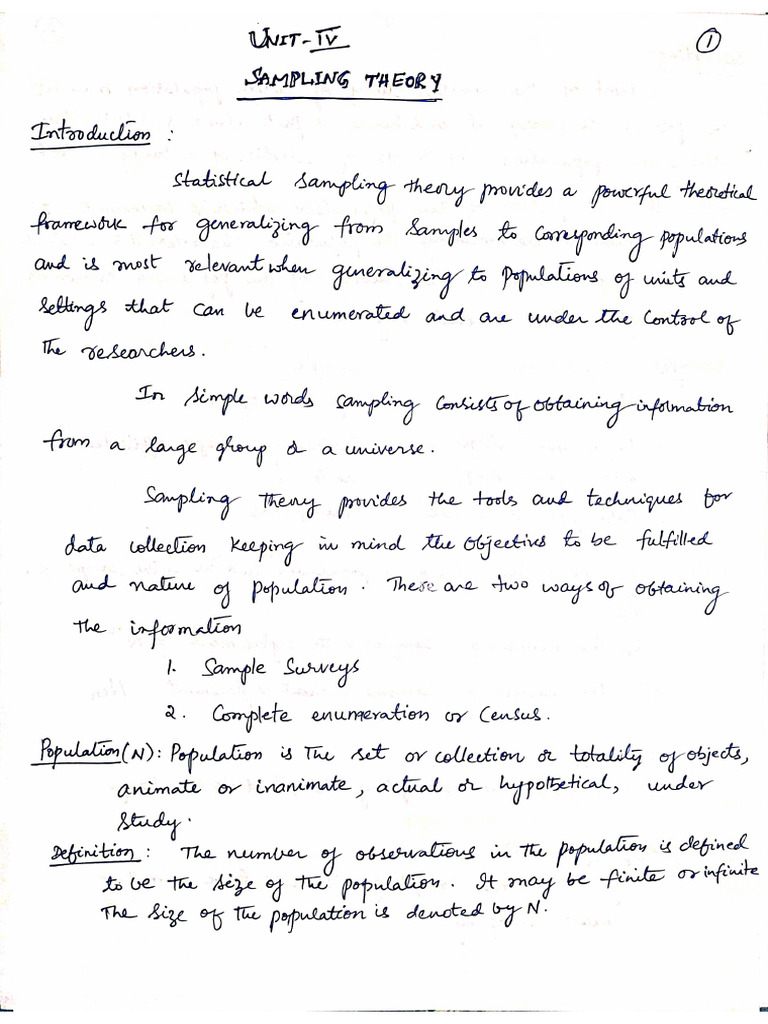 UNIT-IV
①
SAMPLING THEORY
Introduction :
Statistical sampling theory provides a powerful theoretical
framework for generalizing from samples to corresponding populations
and is most relevant when generalizing to populations of units and
settings that can be enumerated and are under the control of
The researchers.
In simple words sampling consists of obtaining information
from a large group or a universe.
Sampling theory provides the tools and techniques for
data collection keeping in mind the objectives to be fulfilled
and nature of population. These are two ways of obtaining
the information
1. Sample Surveys
2. Complete enumeration or Census.
Population (N) : Population is the set or collection or totality of objects,
animate or inanimate, actual or hypothetical, under
study.
Definition : The number of observations in the population is defined
to be the size of the population. It may be finite or infinite
The size of the population is denoted by N.